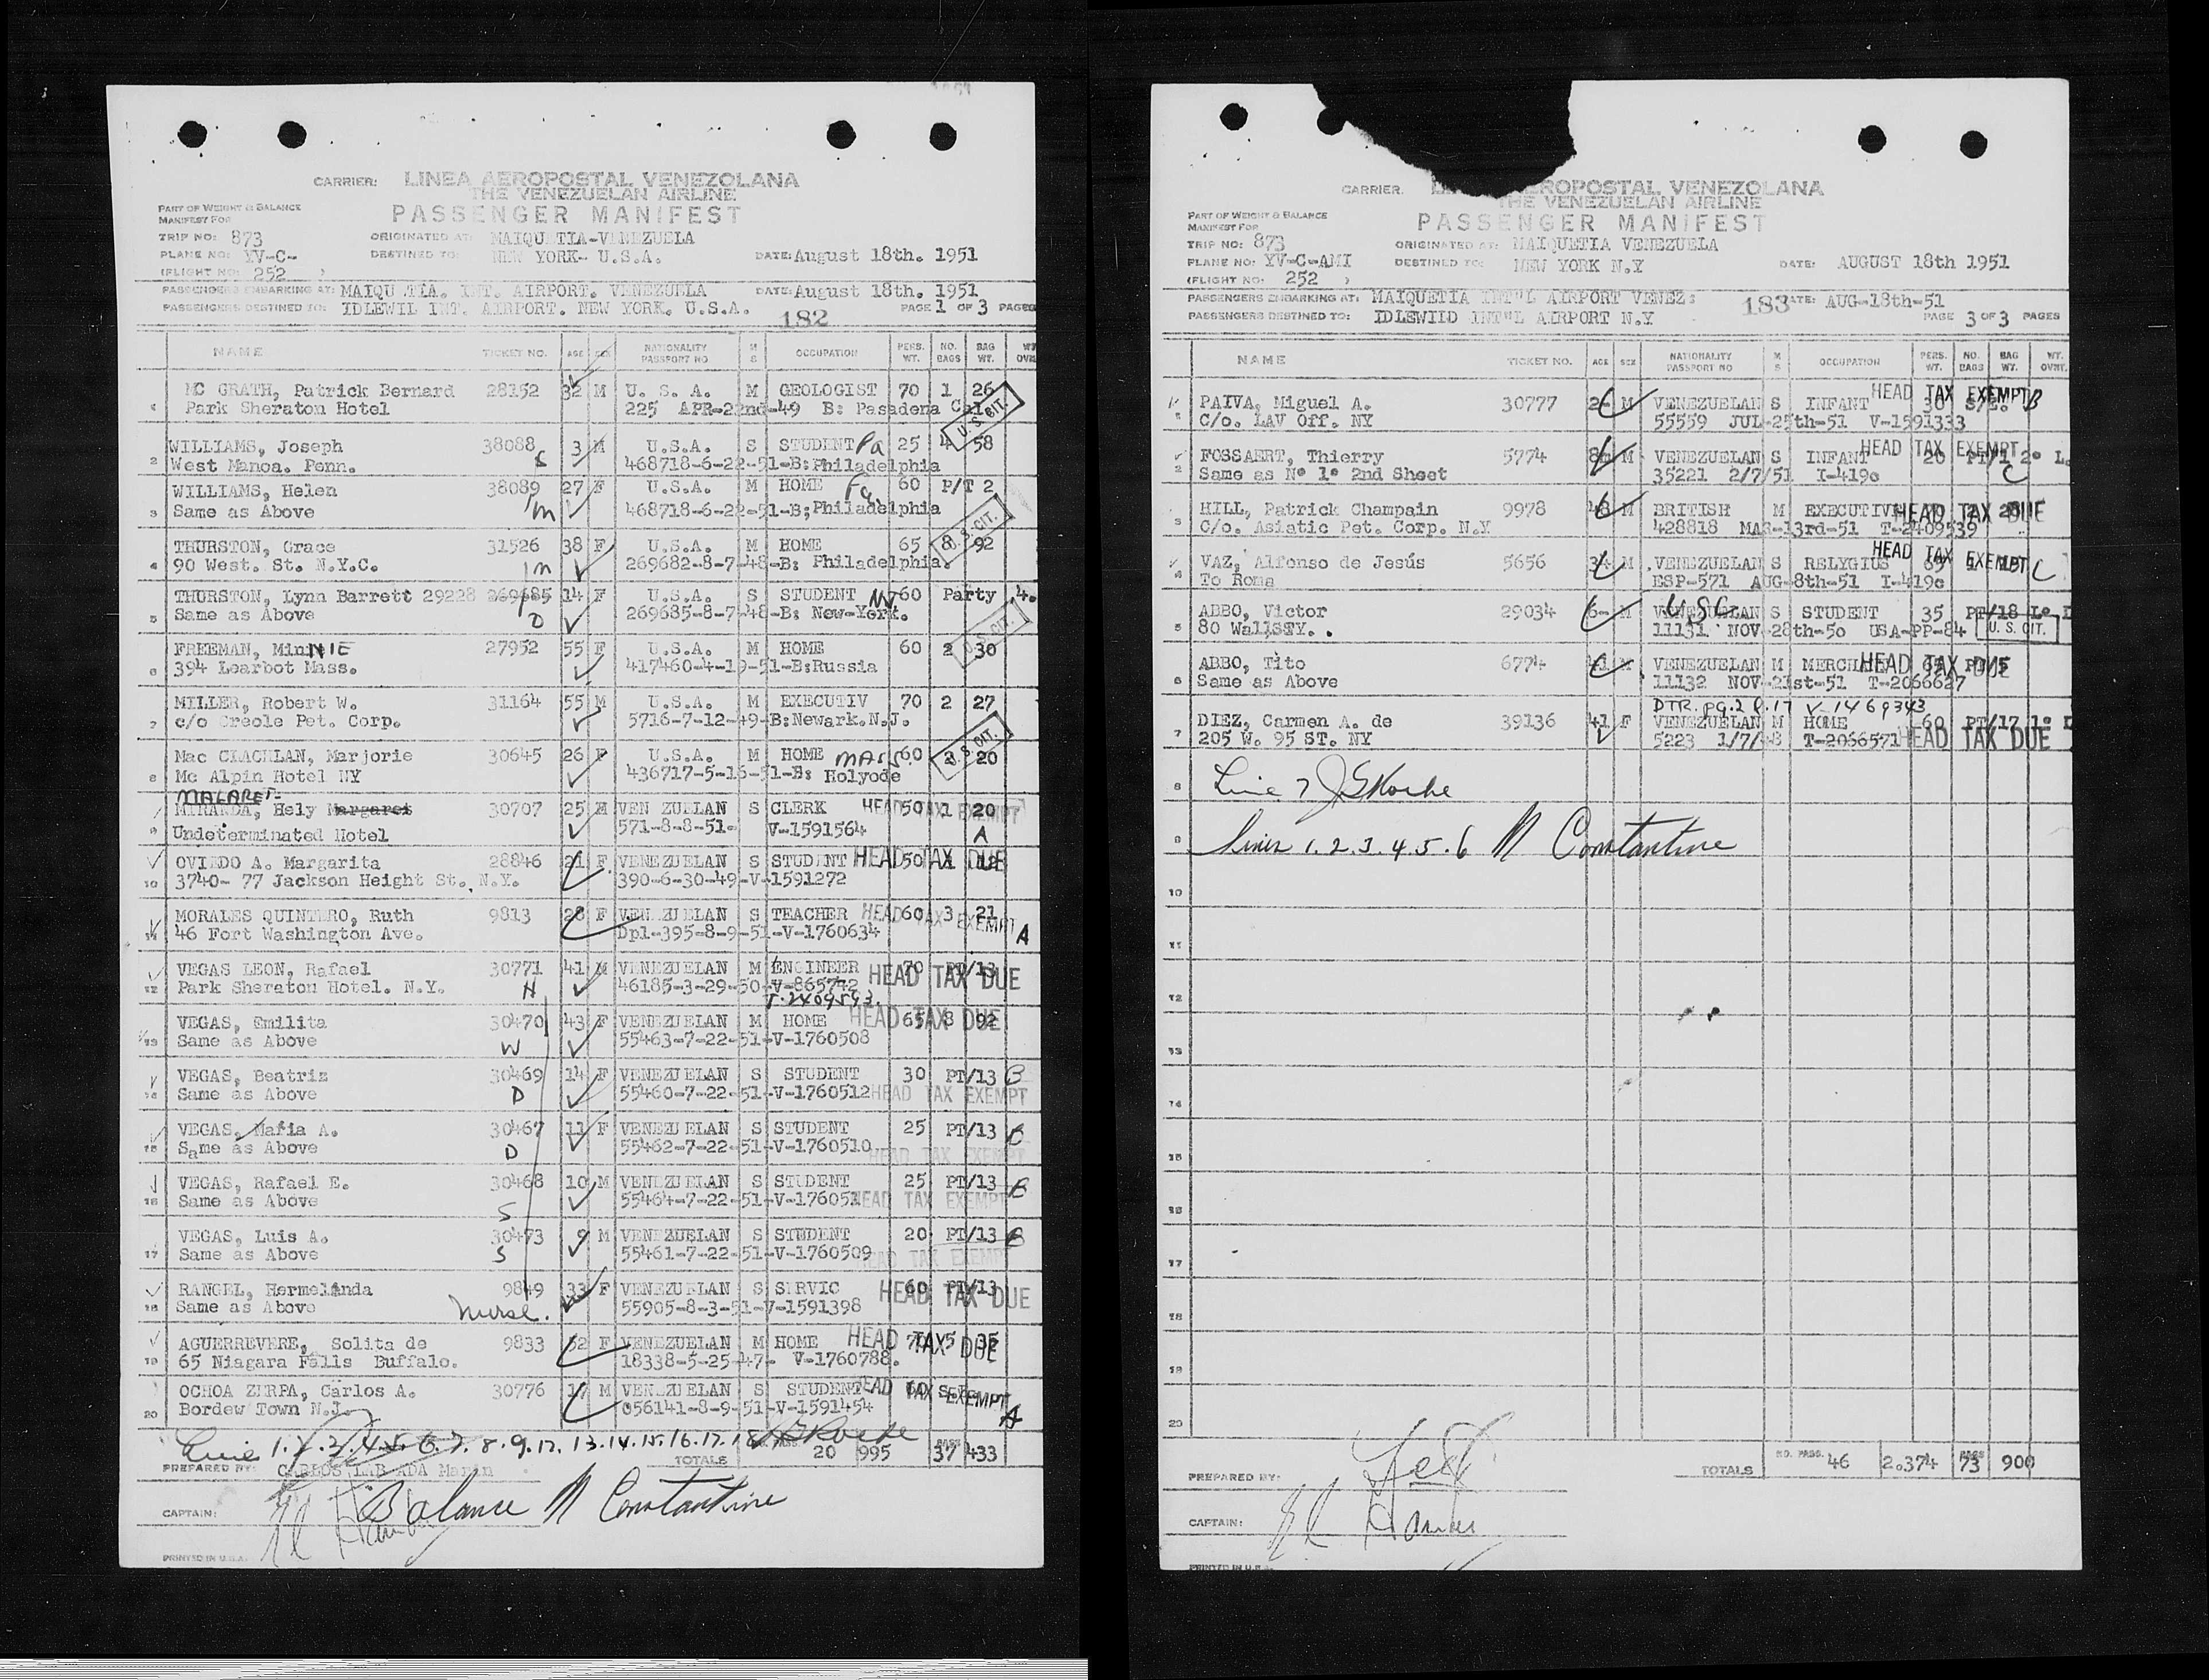 CARRIER: LINEA AEROPOSTAL VENEZOLANA
THE VENEZUELAN AIRLINE
PART OF WEIGHT & BALANCE
MANIFEST FOR
PASSENGER MANIFEST
TRIP NO: 873 ORIGINATED AT: MAIQUETIA-VENEZUELA
PLANE NO: YV-C- DESTINED TO: NEW YORK- U.S.A. DATE: August 18th. 1951
(FLIGHT NO: 252 )
PASSENGERS EMBARKING AT: MAIQUETIA. INT. AIRPORT. VENEZUELA DATE: August 18th. 1951
PASSENGERS DESTINED TO: IDLEWIL INT. AIRPORT. NEW YORK. U.S.A. 182 PAGE 1 OF 3 PAGES
NAME TICKET NO. AGE SEX NATIONALITY PASSPORT NO M S OCCUPATION PERS. WT. NO. BAGS BAG WT. WT OVR
MC GRATH, Patrick Bernard 28152 32 M U. S. A. M GEOLOGIST 70 1 26
1 Park Sheraton Hotel 225 APR-22nd-49 B: Pasadena Cal U.S. CIT.
WILLIAMS, Joseph 38088 3 M U.S.A. S STUDENT Pa 25 4 58
2 West Manoa. Penn. S 468718-6-22-51-B:Philadelphia
WILLIAMS, Helen 38089 27 F U.S.A. M HOME 60 P/T 2
3 Same as Above m 468718-6-22-51-B;Philadelphia
THURSTON, Grace 31526 38 F U.S.A. M HOME 65 8 92 U.S. CIT.
4 90 West. St. N.Y.C. m 269682-8-7-48-B: Philadelphia.
THURSTON, Lynn Barrett 29228 269685 14 F U.S.A. S STUDENT NY 60 Party 4.
5 Same as Above D 269685-8-7-48-B: New-York.
FREEMAN, MinnNIE 27952 55 F U.S.A. M HOME 60 2 30 U.S. CIT.
6 394 Learbot Mass. 417460-4-19-51-B:Russia
MILLER, Robert W. 31164 55 M U.S.A. M EXECUTIV 70 2 27
7 c/o Creole Pet. Corp. 5716-7-12-49-B:Newark.N.J.
Mac CLACHLAN, Marjorie 30645 26 F U.S.A. M HOME MASS 60 2 20 U.S. CIT.
8 Mc Alpin Hotel NY 436717-5-16-51-B: Holyode
MALARET-
MIRANDA, Hely Margaret 30707 25 M VEN ZULLAN S CLERK 50 1 20 HEAD TAX EXEMPT
9 Undeterminated Hotel 571-8-8-51- V-1591564 A
OVIEDO A. Margarita 28846 21 F VENEZUELAN S STUDENT 50 1 12 HEAD TAX DUE
10 3740- 77 Jackson Height St., N.Y. 390-6-30-49-V-1591272
MORALES QUINTERO, Ruth 9813 28 F VENEZUELAN S TEACHER 60 3 21 HEAD TAX EXEMPT
11 46 Fort Washington Ave. Dpl-395-8-9-51-V-1760634 A
VEGAS LEON, Rafael 30771 41 M VENEZUELAN M ENGINEER 70 PT/13 HEAD TAX DUE
12 Park Sheraton Hotel. N.Y. H 46185-3-29-50-V-865742
T-2409593.
VEGAS, Emilita 30470 43 F VENEZUELAN M HOME 65 8 92 HEAD TAX DUE
13 Same as Above W 55463-7-22-51-V-1760508
VEGAS, Beatriz 30469 14 F VENEZUELAN S STUDENT 30 PT/13 B
14 Same as Above D 55460-7-22-51-V-1760512 HEAD TAX EXEMPT
VEGAS, Maria A. 30467 11 F VENEZUELAN S STUDENT 25 PT/13 B
15 Same as Above D 55462-7-22-51-V-1760510 HEAD TAX EXEMPT
VEGAS, Rafael E. 30468 10 M VENEZUELAN S STUDENT 25 PT/13 B
16 Same as Above S 55464-7-22-51-V-17605 HEAD TAX EXEMPT
VEGAS, Luis A. 30473 9 M VENEZUELAN S STUDENT 20 PT/13 B
17 Same as Above S 55461-7-22-51-V-1760509 HEAD TAX EXEMPT
RANGEL, Hermelinda 9849 33 F VENEZUELAN S SERVIC 60 PT/13 HEAD TAX DUE
18 Same as Above Nurse. 55905-8-3-51-V-1591398
AGUERREVERE, Solita de 9833 52 F VENEZUELAN M HOME 5 35 HEAD TAX DUE
19 65 Niagara Falls Buffalo. 18338-5-25-47- V-1760788.
OCHOA ZERPA, Carlos A. 30776 17 M VENEZUELAN S STUDENT 60 HEAD TAX EXEMPT
20 Bordew Town N.J. 056141-8-9-51-V-1591454 A
Line 1.2.3.4.5.6.7.8.9.12.13.14.15.16.17.18 JGRoche
TOTALS 20 995 37 433
PREPARED BY: CARLOS
CAPTAIN: Balance N Constantine
PRINTED IN U.S.A.
CARRIER. AEROPOSTAL VENEZOLANA
THE VENEZUELAN AIRLINE
PART OF WEIGHT & BALANCE
MANIFEST FOR
PASSENGER MANIFEST
TRIP NO: 873 ORIGINATED AT: MAIQUETIA VENEZUELA
PLANE NO: YV-C-AMI DESTINED TO: NEW YORK N.Y DATE: AUGUST 18th 1951
(FLIGHT NO: 252 )
PASSENGERS EMBARKING AT: MAIQUETIA INT"L AIRPORT VENEZ: 183 DATE: AUG-18th-51
PASSENGERS DESTINED TO: IDLEWIID INT"L AIRPORT N.Y PAGE 3 OF 3 PAGES
NAME TICKET NO. AGE SEX NATIONALITY PASSPORT NO M S OCCUPATION PERS. WT. NO. BAGS BAG WT. WT. OVWT.
PAIVA, Miguel A. 30777 2- M VENEZUELAN S INFANT 30 HEAD TAX EXEMPT B
1 C/o. LAV Off. NY 55559 JUL-25th-51 V-1591333
FOSSAERT, Thierry 5774 8m M VENEZUELAN S INFANT 20 PT/1 2º L. HEAD TAX EXEMPT
2 Same as Nº 1º 2nd Sheet 35221 2/7/51 I-419c C
HILL, Patrick Champain 9978 48 M BRITISH M EXECUTIVE 2 28 HEAD TAX DUE
3 C/o. Asiatic Pet. Corp. N.Y 428818 MAR-13rd-51 T-2409539
VAZ, Alfonso de Jesús 5656 34 M VENEZUELAN S RELYGIUS 65 HEAD TAX EXEMPT C
4 To Roma ESP-571 AUG-8th-51 I-419c
ABBO, Victor 29034 6- M VENEZUELAN USC S STUDENT 35 PT/18 Lº
5 80 WallSTY. . 11131 NOV-28th-50 USA-PP-84 U. S. CIT.
ABBO, Tito 6774 41 M VENEZUELAN M MERCHANT 65 PT/5 HEAD TAX DUE
6 Same as Above 11132 NOV-21st-51 T-2066627
DTR. pg. 2 l. 17 V-1469343
DIEZ, Carmen A. de 39136 41 F VENEZUELAN M HOME 60 PT/17 1º
7 205 W. 95 ST. NY 5223 1/7/48 T-2066571 HEAD TAX DUE
8 Line 7 JGRoche
9 Lines 1.2.3.4.5.6 N Constantine
10
11
12
13
14
15
16
17
18
19
20
TOTALS NO. PASS. 46 2.374 BAGS 73 900
PREPARED BY:
CAPTAIN:
PRINTED IN U.S.A.